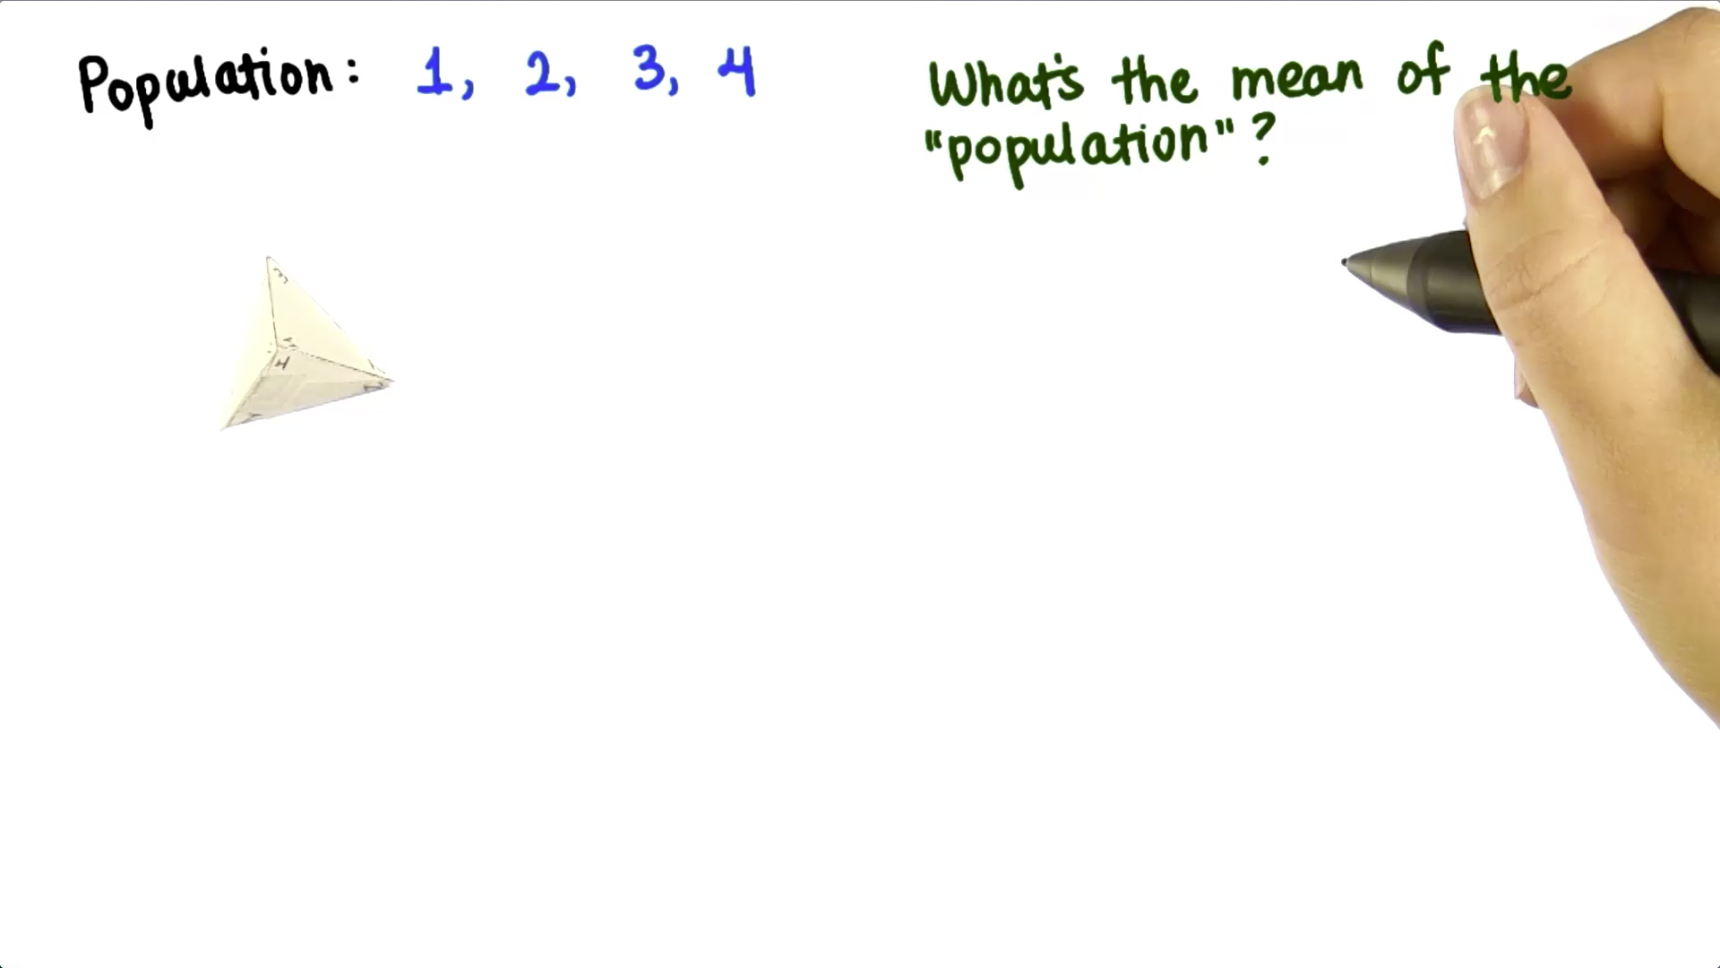 Population: 1, 2, 3, 4
What's the mean of the
"population"?
3
4